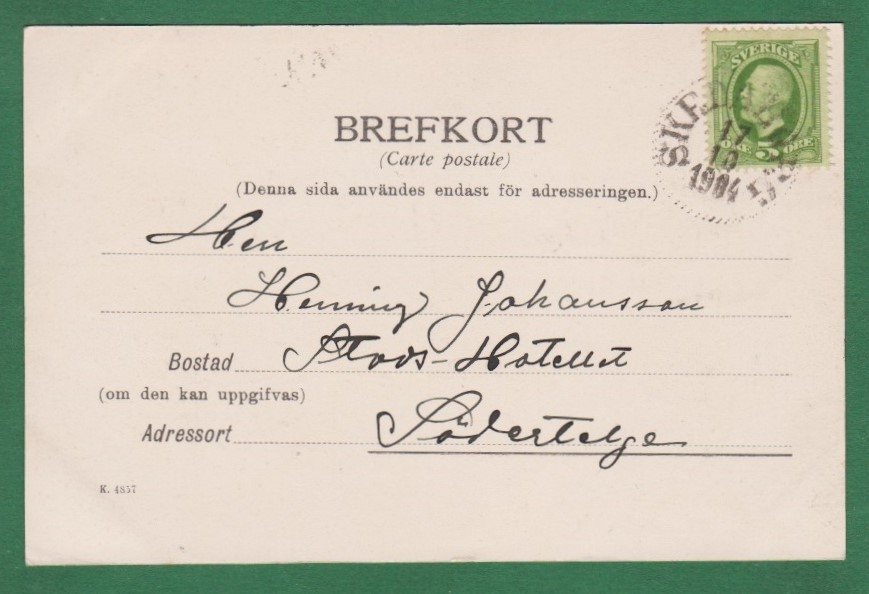 SVERIGE
5
ÖRE ÖRE
17
10
1904
BREFKORT
(Carte postale)
(Denna sida användes endast för adresseringen.)
Herr
Henning Johansson
Bostad Stads-Hotellet
(om den kan uppgifvas)
Adressort Södertelge
K. 4857